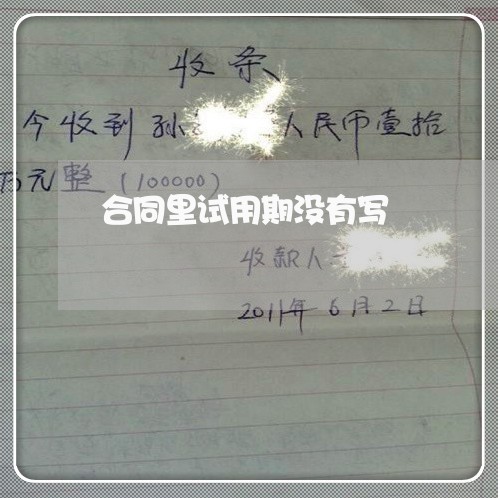 收条
今收到孙 人民币壹拾
万元整（100000）
合同里试用期没有写
收款人
2011年6月2日